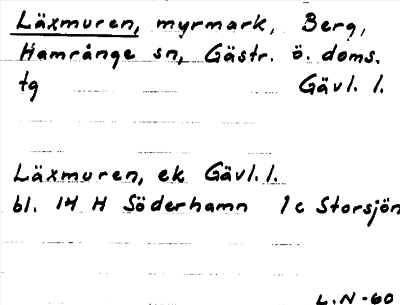 Läxmuren, myrmark, Berg,
Hamrånge sn, Gästr. ö. doms.
tg Gävl. l.
Läxmuren, ek Gävl. l.
bl. 14 H Söderhamn 1c Storsjön
L.N-60